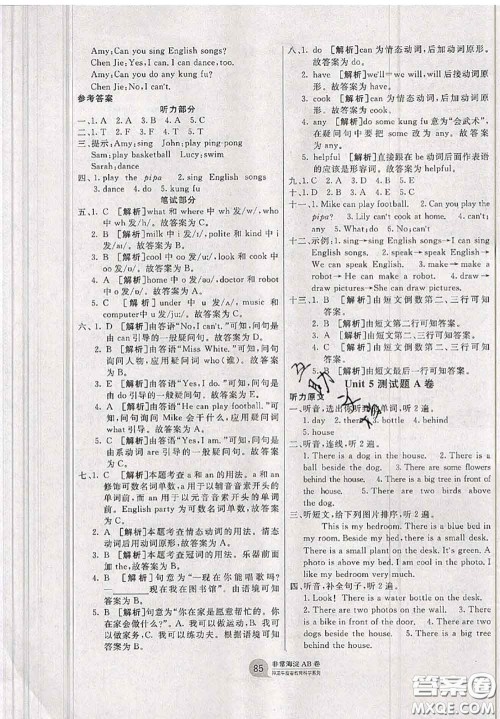 Amy:Can you sing English songs?
Chen Jie:Yes,I can. I can dance,too.
Amy:Can you do any kung fu?
Chen Jie:No,I can't.
参考答案
听力部分
一、1. A 2. A 3. A 4. A 5. C
二、1. T 2. T 3. F 4. F 5. T
三、提示:Amy;sing John;play ping-pong
Sam;play basketball Lucy;swim
Sarah;dance
四、1. play the pipa 2. sing English songs
3. dance 4. do 5. kung fu
笔试部分
五、1. C [解析]what 和 where 中 wh 发/w/,who 中
wh 发/h/。故答案为 C。
2. B [解析]milk 中 i 发/ɪ/,polite 和 kind 中 i
发/aɪ/。故答案为 B。
3. B [解析]cool 中 oo 发/uː/,look 和 cook 中
oo 发/ʊ/。故答案为 B。
4. A [解析]home 中 o 发/əʊ/,doctor 和 robot
中 o 发/ɒ/。故答案为 A。
5. C [解析]under 中 u 发/ʌ/,music 和
computer 中 u 发/juː/。故答案为 C。
六、1. B [解析]由答语“No,I can't.”可知,问句是
由 can 引导的一般疑问句。故答案为 B。
2. B [解析]由答语“Miss White.”可知,问句是
对人物称呼(谁)提问。故答案为 B。
3. C [解析]由答语“Yes,I do.”可知,问句是由
do 引导的一般疑问句。故答案为 C。
4. A [解析]由答语“He can play football.”可
知,问句询问 Mike 会干什么。故答案为 A。
5. C [解析]由答语“Yes,he is.”可知,问句是
由系动词 are 引导的一般疑问句。故答案
为 C。
七、1. C [解析]本题考查 a 和 an 的用法。a 和 an
修饰可数名词单数,a 用于以辅音音素开头的
单词前,而 an 用于以元音音素开头的单词
前,songs 为可数名词复数。故答案为 C。
2. A [解析]本题考查情态动词的用法。情态
动词后用动词原形。故答案为 A。
3. A [解析]本题考查冠词的用法。乐器前面
加 the。故答案为 A。
4. B [解析]句意为“—现在你能唱歌吗?
—我现在在图书馆”。由语境可知
答案为 B。
5. B [解析]句意为“你在家是愿意帮忙的。你
在家能做什么? 我能做家务”。由语境可知
答案为 B。
八、1. do [解析]can 为情态动词,后加动词原形。
故答案为 do。
2. have [解析]we'll=we will,will 后接动词原
形。故答案为 have。
3. cook [解析]can 为情态动词,后加动词原形。
故答案为 cook。
4. any [解析]do some kung fu 意为“会武术”。
在疑问句中要把 some 改为 any。故答案
为 any。
5. helpful [解析]后面跟在 be 动词后面作表语
的应该是形容词。故答案为 helpful。
九、1. C 2. A 3. E 4. B 5. D
十、1. D 2. A 3. B 4. E 5. C
十一、1. Mike can play football. 2. Can you play the
pipa? 3. Lily can't cook at home. 4. can't
any 5. What; do? No
十二、示例:1. sing→sing English songs→I can sing
English songs. 2. speak→speak English→
We can speak English. 3. make→make a
robot→He can make a robot. 4. draw→
draw pictures→She can draw pictures.
十三、1. B [解析]由短文倒数第二、三行可知答案。
2. B [解析]由短文倒数第二、三行可知答案。
3. A [解析]由短文第一、二行可知答案。
4. B [解析]由短文第二行可知答案。
5. B [解析]由短文最后一行可知答案。
Unit 5 测试题 A 卷
听力原文
一、听音,选出你所听到的单词,听 2 遍。
1. day 2. there 3. bottle 4. behind
5. house
二、听音,连线,听 2 遍。
1. There is a dog in the house.
2. There is a cat on the desk.
3. There is a boy behind the tree.
4. There is a bike in front of the house. There
are some flowers behind the house.
5. There is a big tree in front of the house.
三、听短文,给下列图片排序,听 2 遍。
This is my bedroom. There is a blue bed in
my room. There is a desk beside the bed.
There is a small plant on the desk. It's green.
There is a photo above the desk. There is a
basketball under the desk. That is my bedroom.
四、听音,补全句子,听 2 遍。
1. Look! There is a water bottle on the desk.
2. There are two photos on the wall.
3. There is a bike in front of the house.
4. There is a big tree beside the building.
5. There are some flowers on the table.
85
非常海淀 AB 卷